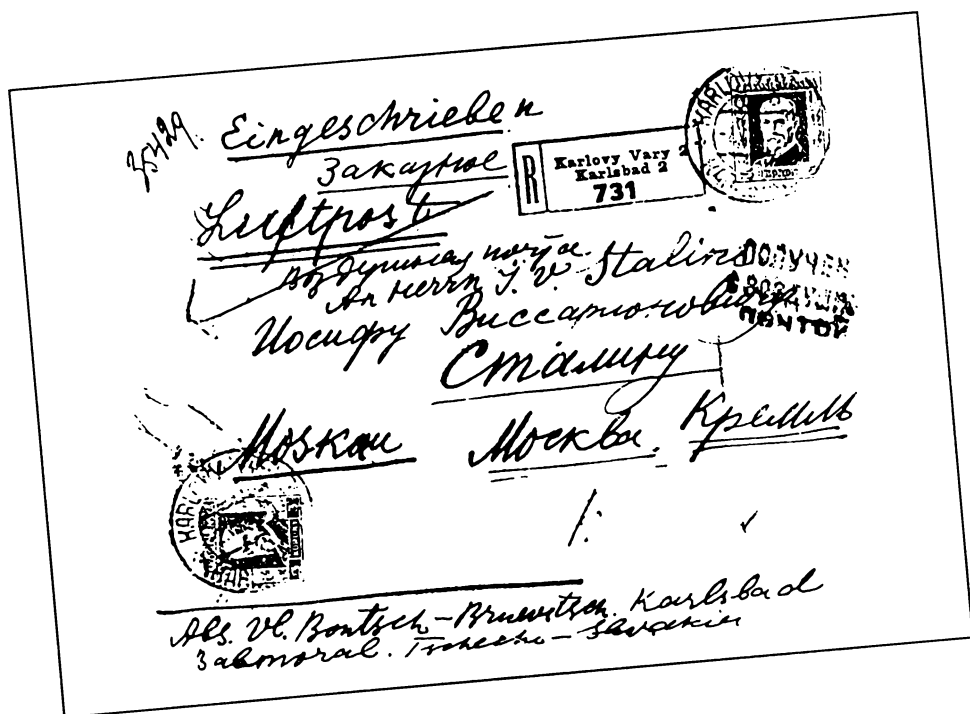 35429.
Eingeschrieben
Заказное
R Karlovy Vary 2
Karlsbad 2
731
Luftpost
Воздушная почта
An Herrn I. V. Stalin
ПОЛУЧЕН
ВОЗДУШН
ПОЧТОЙ
Иосифу Виссарионовичу
Сталину
Moskau Москва. Кремль
KARLOVY
1.
Abs. Vl. Bontsch-Bruewitsch. Karlsbad
3 abmoral. Tschecho-Slovakie